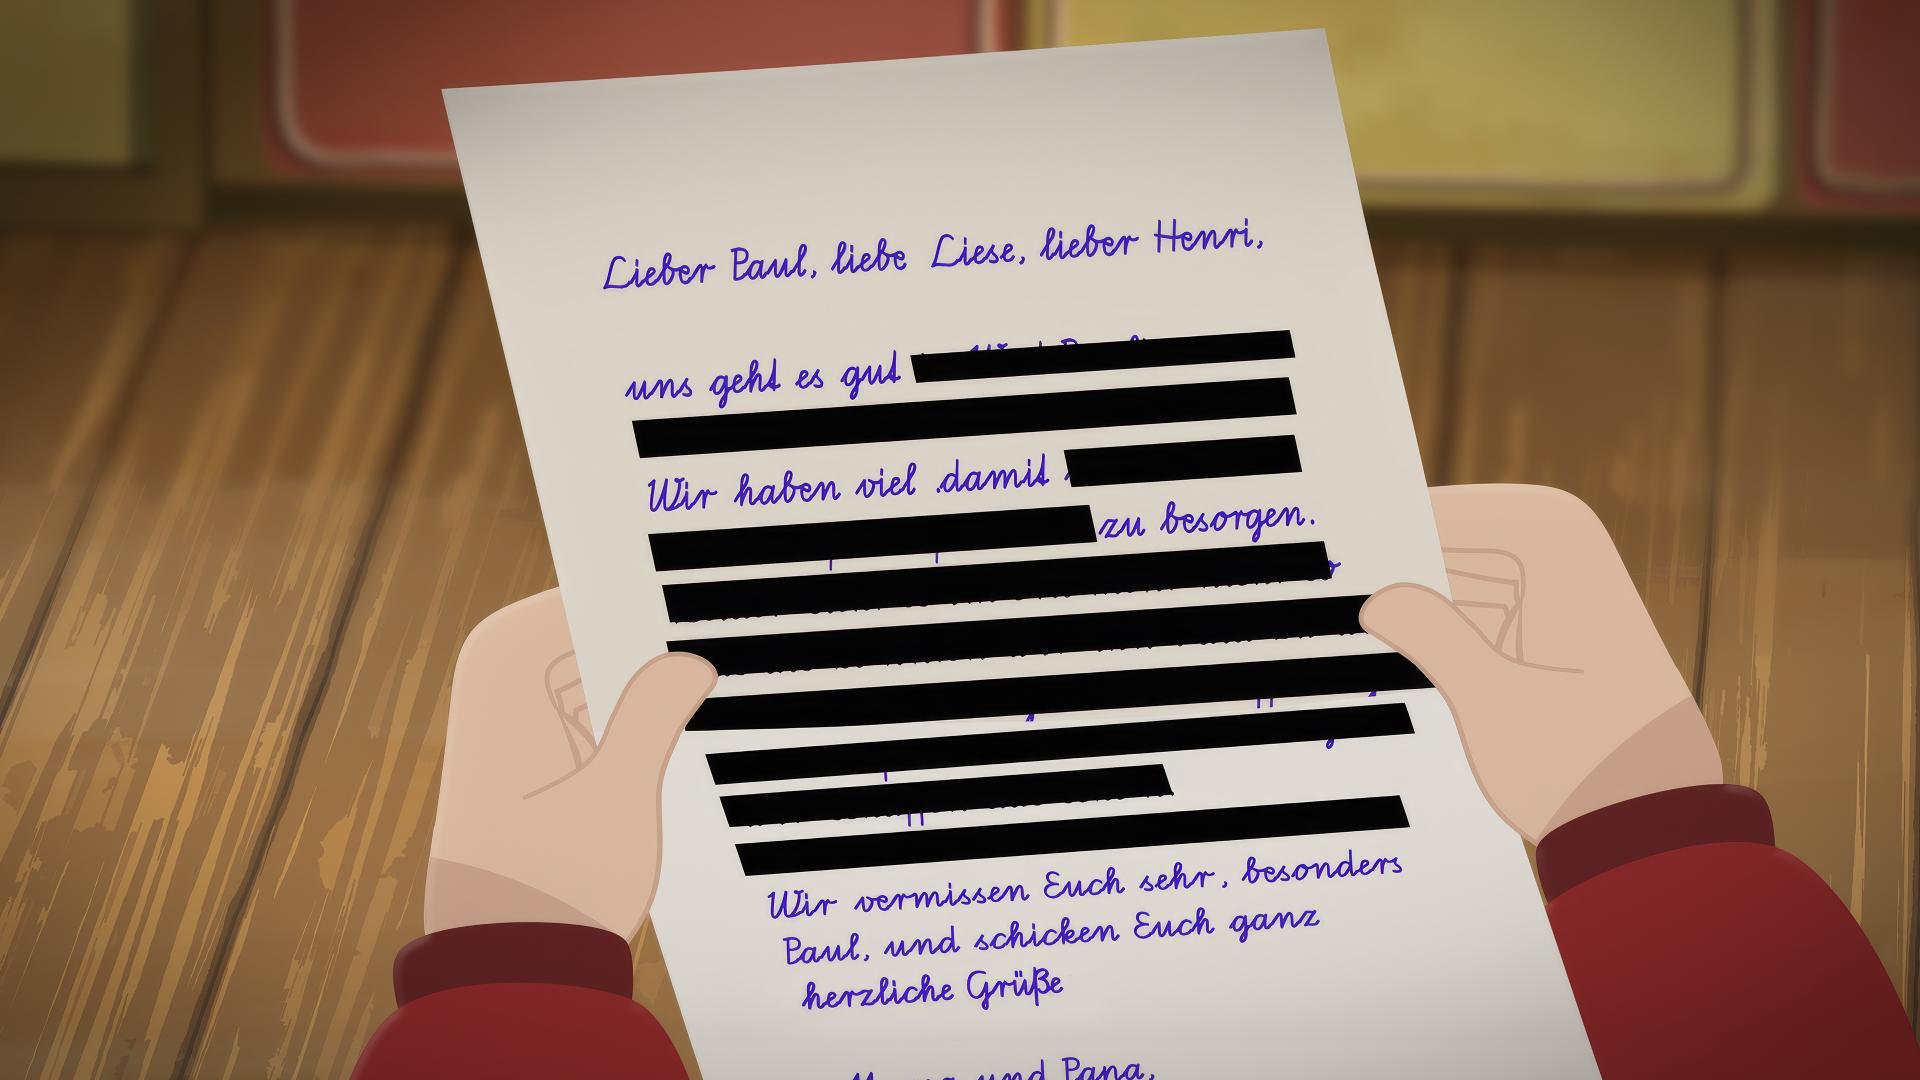 Lieber Paul, liebe Liese, lieber Henri,
uns geht es gut
Wir haben viel damit
zu besorgen.
Wir vermissen Euch sehr, besonders
Paul, und schicken Euch ganz
herzliche Grüße
und Papa,